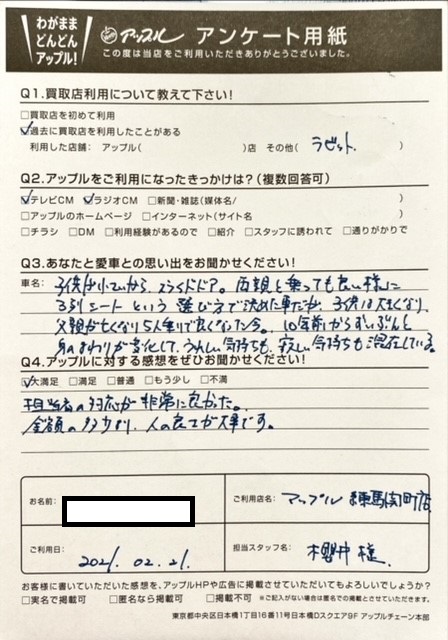 わがまま
どんどん
アップル!
アップル アンケート用紙
この度は当店をご利用いただきありがとうございました。
Q1.買取店利用について教えて下さい!
□買取店を初めて利用
☑過去に買取店を利用したことがある
利用した店舗: アップル( )店 その他( ラビット )
Q2.アップルをご利用になったきっかけは?(複数回答可)
☑テレビCM ☑ラジオCM □新聞・雑誌(媒体名/ )
□アップルのホームページ □インターネット(サイト名 )
□チラシ □DM □利用経験があるので □紹介 □スタッフに誘われて □通りがかりで
Q3.あなたと愛車との思い出をお聞かせください!
車名: 子供が小さいから、スライドドア。両親と乗っても良い様に
3列シートという選び方で決めた車だが、子供は大きくなり、
父親が亡くなり5人乗りで良くなった今。10年前からずいぶんと
身のまわりが変化して、うれしい気持ちも、寂しい気持ちも混在している。
Q4.アップルに対する感想をぜひお聞かせください!
☑大満足 □満足 □普通 □もう少し □不満
担当者の対応が非常に良かった。
金額の多少より、人の良さが大事です。
お名前: ご利用店名: アップル 練馬関町店
ご利用日: 2021.02.21. 担当スタッフ名: 櫻井様
お客様に書いていただいた感想を、アップルHPや広告に掲載させていただいてもよろしいでしょうか?
□実名で掲載可 □匿名なら掲載可 □掲載不可 ※ご記入がない場合は匿名での掲載とさせていただきます。
東京都中央区日本橋1丁目16番11号日本橋Dスクエア9F アップルチェーン本部